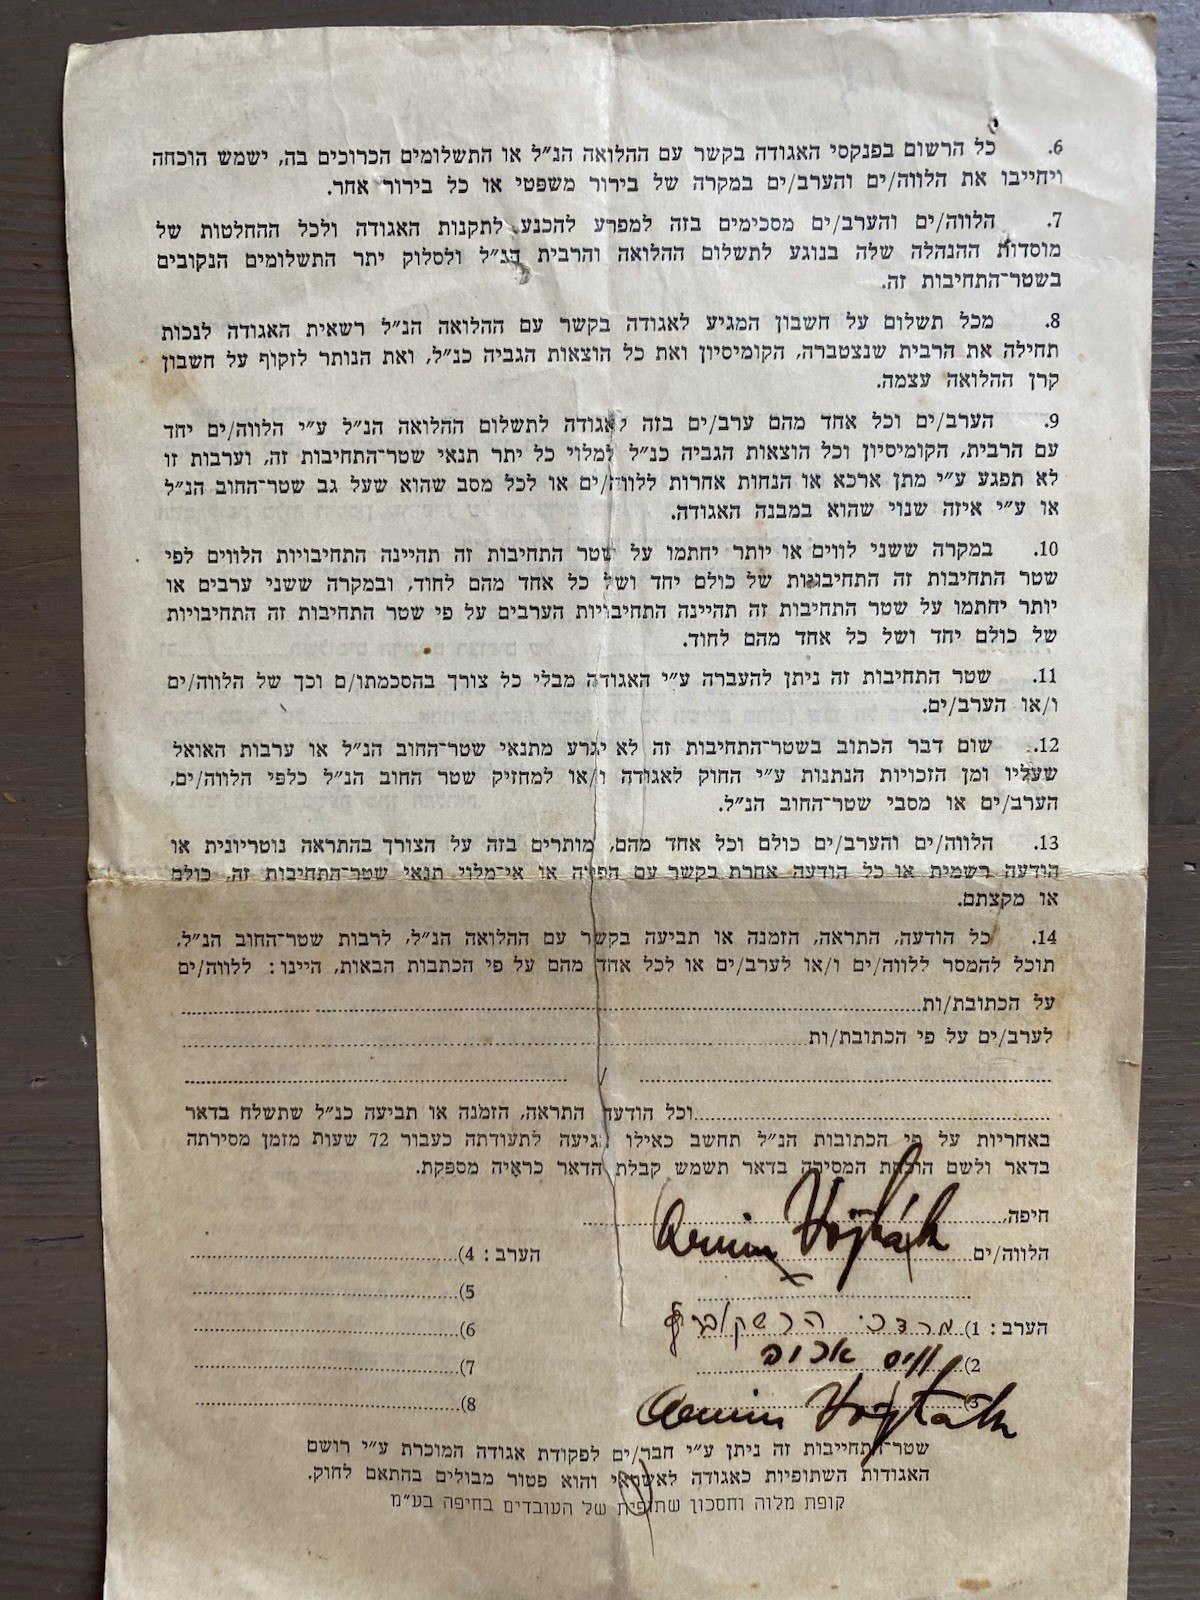 6. כל הרשום בפנקסי האגודה בקשר עם ההלואה הנ״ל או התשלומים הכרוכים בה, ישמש הוכחה
ויחייבו את הלווה/ים והערב/ים במקרה של בירור משפטי או כל בירור אחר.
7. הלווה/ים והערב/ים מסכימים בזה למפרע להכנע לתקנות האגודה ולכל ההחלטות של
מוסדות ההנהלה שלה בנוגע לתשלום ההלואה והרבית הנ״ל ולסלוק יתר התשלומים הנקובים
בשטר־התחיבות זה.
8. מכל תשלום על חשבון המגיע לאגודה בקשר עם ההלואה הנ״ל רשאית האגודה לנכות
תחילה את הרבית שנצטברה, הקומיסיון ואת כל הוצאות הגביה כנ״ל, ואת הנותר לזקוף על חשבון
קרן ההלואה עצמה.
9. הערב/ים וכל אחד מהם ערב/ים בזה לאגודה לתשלום ההלואה הנ״ל ע״י הלווה/ים יחד
עם הרבית, הקומיסיון וכל הוצאות הגביה כנ״ל למלוי כל יתר תנאי שטר־התחיבות זה, וערבות זו
לא תפגע ע״י מתן ארכא או הנחות אחרות ללווה/ים או לכל מסב שהוא שעל גב שטר־החוב הנ״ל
או ע״י איזה שנוי שהוא במבנה האגודה.
10. במקרה ששני לווים או יותר יחתמו על שטר התחיבות זה תהיינה התחיבויות הלווים לפי
שטר התחיבות זה התחיבויות של כולם יחד ושל כל אחד מהם לחוד, ובמקרה ששני ערבים או
יותר יחתמו על שטר התחיבות זה תהיינה התחיבויות הערבים על פי שטר התחיבות זה התחיבויות
של כולם יחד ושל כל אחד מהם לחוד.
11. שטר התחיבות זה ניתן להעברה ע״י האגודה מבלי כל צורך בהסכמתו/ם וכך של הלווה/ים
ו/או הערב/ים.
12. שום דבר הכתוב בשטר־התחיבות זה לא יגרע מתנאי שטר־החוב הנ״ל או ערבות האואל
שעליו ומן הזכויות הנתנות ע״י החוק לאגודה ו/או למחזיק שטר החוב הנ״ל כלפי הלווה/ים,
הערב/ים או מסבי שטר־החוב הנ״ל.
13. הלווה/ים והערב/ים כולם וכל אחד מהם, מותרים בזה על הצורך בהתראה נוטריונית או
הודעה רשמית או כל הודעה אחרת בקשר עם הפיה או אי־מלוי תנאי שטר־התחיבות זה, כולם
או מקצתם.
14. כל הודעה, התראה, הזמנה או תביעה בקשר עם ההלואה הנ״ל, לרבות שטר־החוב הנ״ל,
תוכל להמסר ללווה/ים ו/או לערב/ים או לכל אחד מהם על פי הכתבות הבאות, היינו: ללווה/ים
על הכתובת/ות
לערב/ים על פי הכתובת/ות
וכל הודעה התראה, הזמנה או תביעה כנ״ל שתשלח בדאר
באחריות על פי הכתובות הנ״ל תחשב כאילו הגיעה לתעודתה כעבור 72 שעות מזמן מסירתה
בדאר ולשם הוכחת המסירה בדאר תשמש קבלת הדאר כראיה מספקת.
חיפה,
הלווה/ים Armin Vojtách הערב: 4)
5)
הערב: 1) מרדכי הרשקוביץ 6)
2) וייס אריה 7)
3) Armin Vojtách 8)
שטר־התחייבות זה ניתן ע״י חבר/ים לפקודת אגודה המוכרת ע״י רושם
האגודות השתופיות כאגודה לאשראי והוא פטור מבולים בהתאם לחוק.
קופת מלוה וחסכון שתופית של העובדים בחיפה בע״מ